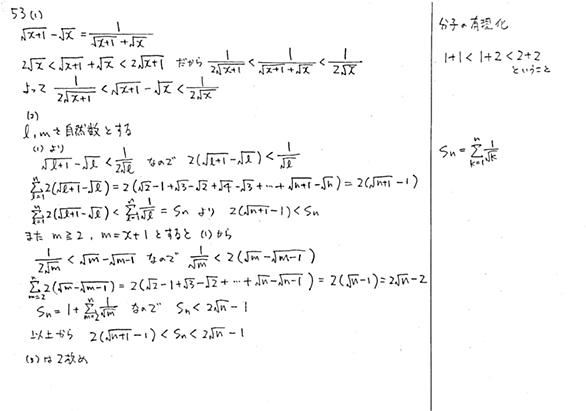 53 (1)
√(x+1) - √x = 1/(√(x+1) + √x)
2√x < √(x+1) + √x < 2√(x+1) だから 1/(2√(x+1)) < 1/(√(x+1) + √x) < 1/(2√x)
よって 1/(2√(x+1)) < √(x+1) - √x < 1/(2√x)
(2)
l, m を自然数とする
(1) より
√(l+1) - √l < 1/(2√l) なので 2(√(l+1) - √l) < 1/√l
∑_{l=1}^{n} 2(√(l+1) - √l) = 2(√2 - 1 + √3 - √2 + √4 - √3 + … + √(n+1) - √n) = 2(√(n+1) - 1)
∑_{l=1}^{n} 2(√(l+1) - √l) < ∑_{l=1}^{n} 1/√l = Sn より 2(√(n+1) - 1) < Sn
また m ≧ 2, m = x + 1 とすると (1) から
1/(2√m) < √m - √(m-1) なので 1/√m < 2(√m - √(m-1))
∑_{m=2}^{n} 2(√m - √(m-1)) = 2(√2 - 1 + √3 - √2 + … + √n - √(n-1)) = 2(√n - 1) = 2√n - 2
Sn = 1 + ∑_{m=2}^{n} 1/√m なので Sn < 2√n - 1
以上から 2(√(n+1) - 1) < Sn < 2√n - 1
(3) は 2枚め
分子の有理化
1+1 < 1+2 < 2+2
ということ
Sn = ∑_{k=1}^{n} 1/√k